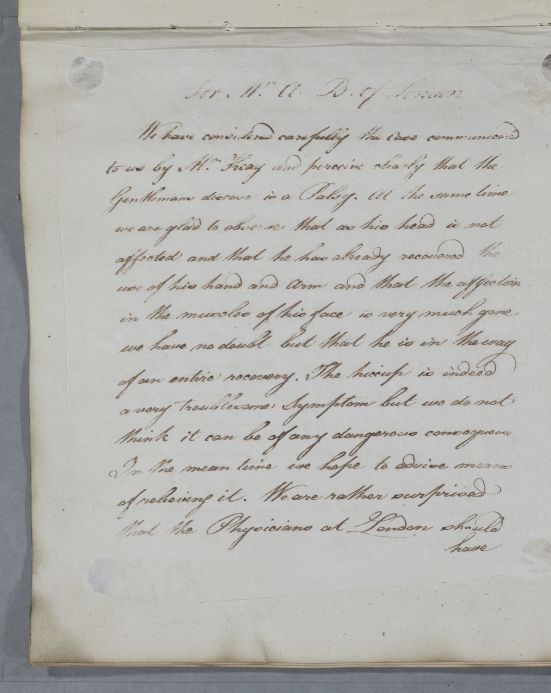 For Mr. A. B. of London
We have considered carefully the Case communicated
to us by Mr. Hay and perceive clearly that the
Gentlemans disease is a Palsy. At the same time
we are glad to observe that as his head is not
affected and that he has already recovered the
use of his hand and Arm and that the affection
in the muscles of his face is very much gone
we have no doubt but that he is in the way
of an entire recovery. The hiccup is indeed
a very troublesome Symptom but we do not
think it can be of any dangerous consequence
In the mean time we hope to advise means
of relieving it. We are rather surprised
that the Physicians at London should
have